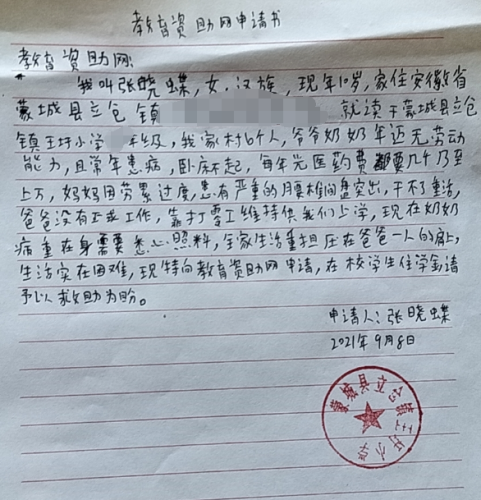 教育资助网申请书
教育资助网:
我叫张晓蝶,女,汉族,现年10岁,家住安徽省
蒙城县立仓镇 就读于蒙城县立仓
镇王圩小学 年级,我家有6个人,爷爷奶奶年迈无劳动
能力,且常年患病,卧床不起,每年光医药费都要几千乃至
上万,妈妈因劳累过度,患有严重的腰椎间盘突出,干不了重活,
爸爸没有正式工作,靠打零工维持供我们上学,现在奶奶
病重在身需要悉心照料,全家生活重担压在爸爸一人的肩上,
生活实在困难,现特向教育资助网申请,在校学生住学金请
予以救助为盼。
申请人:张晓蝶
2021年9月8日
蒙城县立仓镇王圩小学